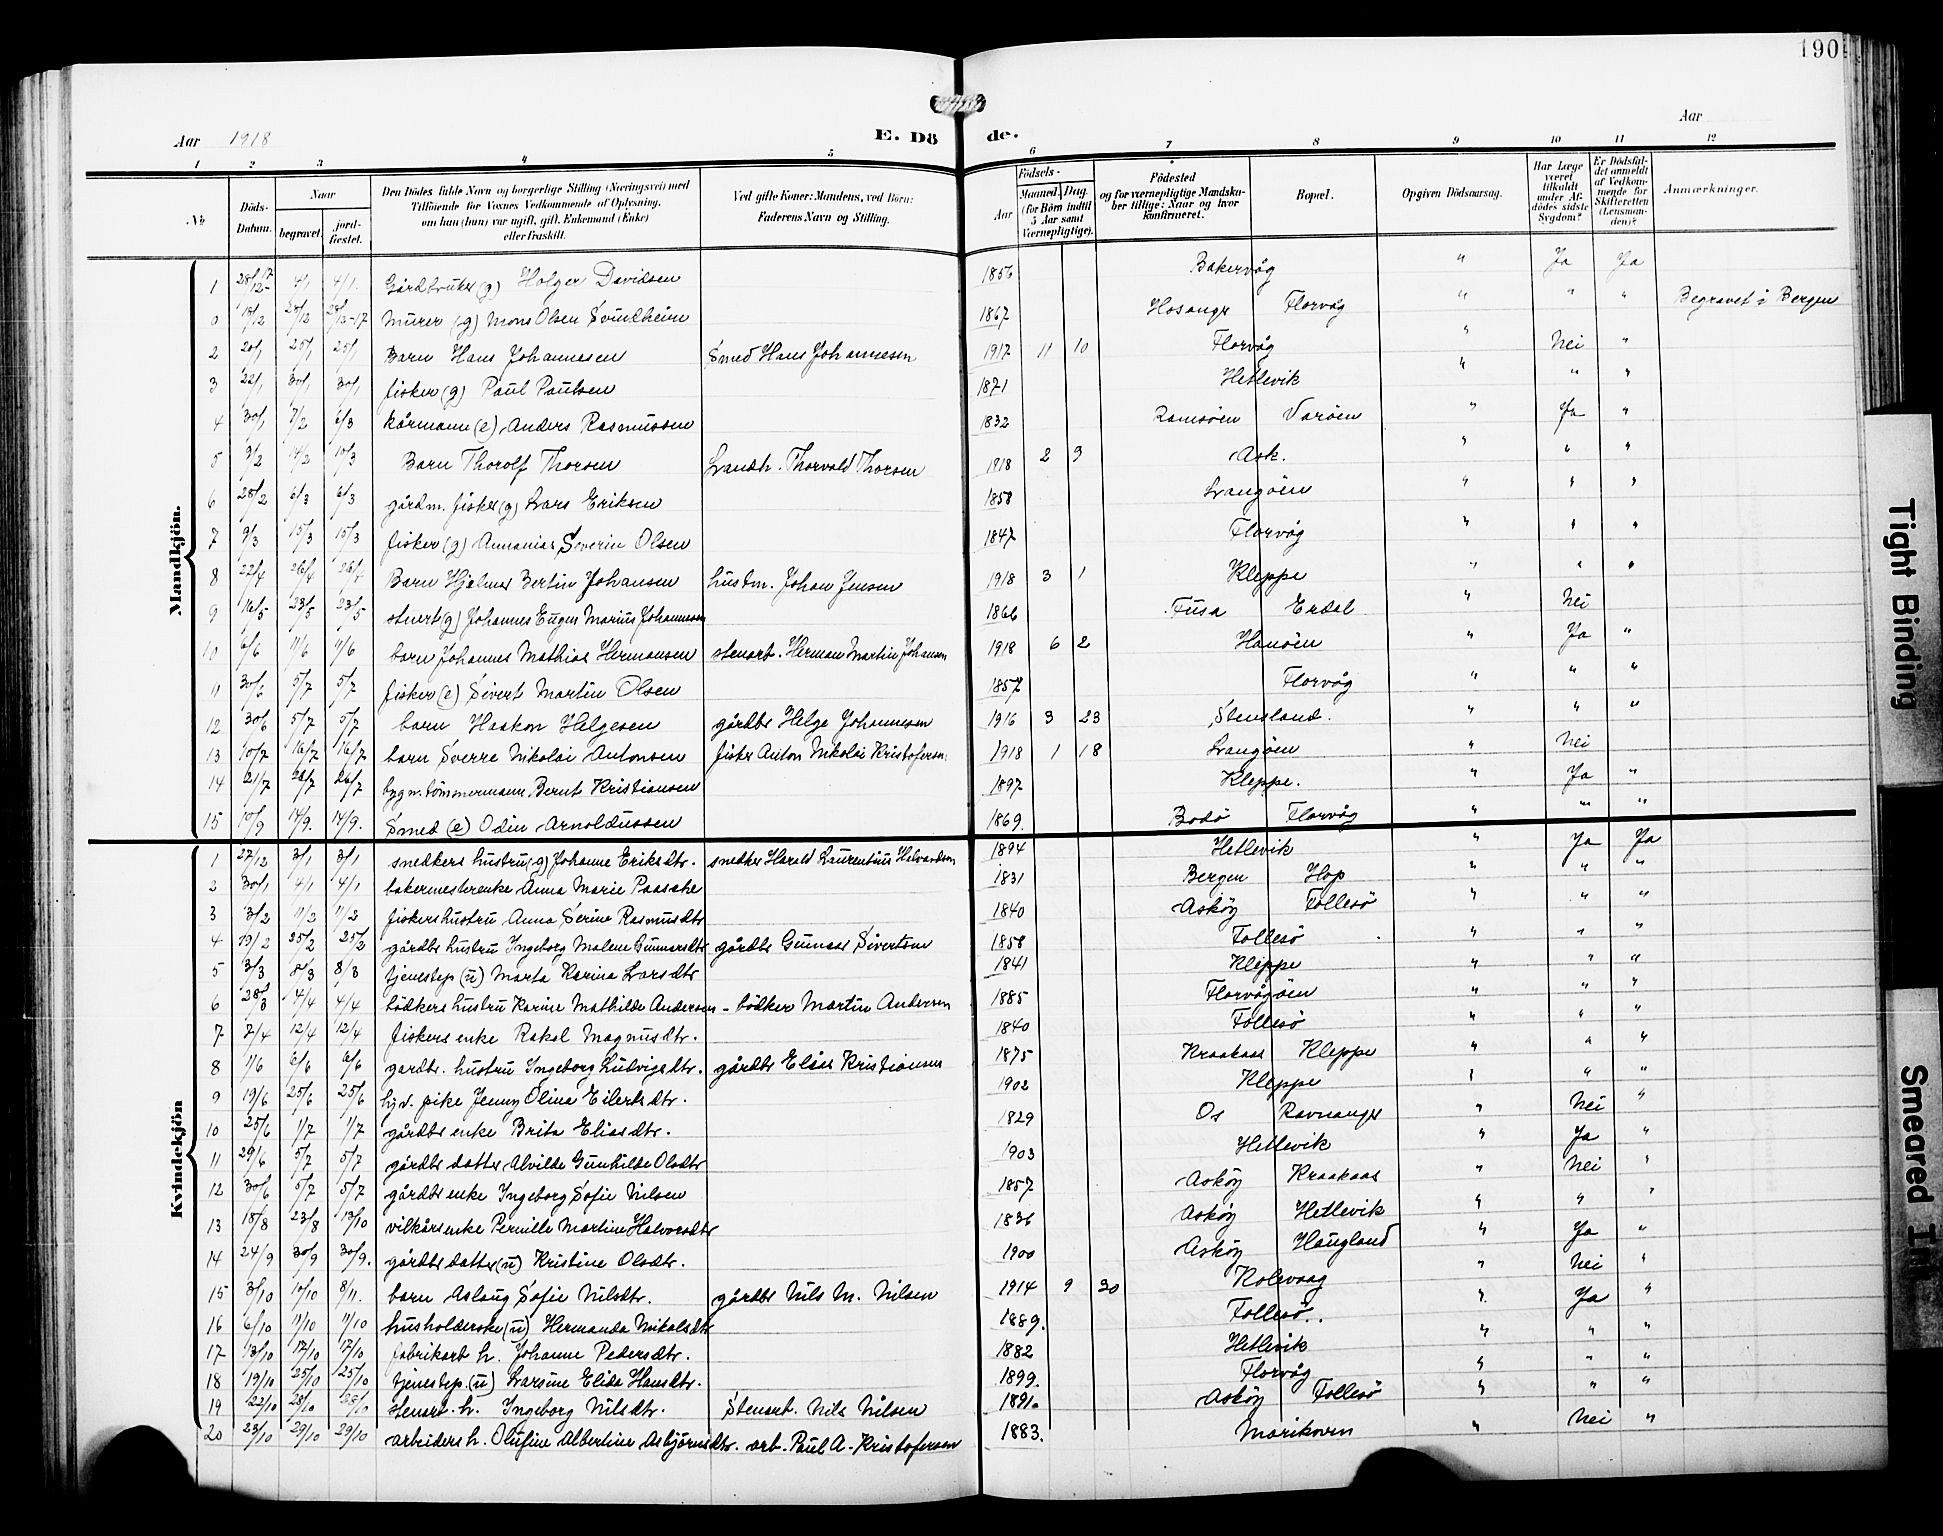 190
Aar 1918 E. Dö de. Aar
1 2 3 4 5 6 7 8 9 10 11 12
№ Döds-Datum. Naar begravet. jordfæstet. Den Dödes fulde Navn og borgerlige Stilling (Næringsvei) med Tilföiende for Voxnes Vedkommende af Oplysning, om han (hun) var ugift, gift, Enkemand (Enke) eller fraskilt. Ved gifte Koner: Mandens, ved Börn: Faderens Navn og Stilling. Födsels- Aar Maaned. Dag. (for Börn indtil 5 Aar samt Værnepligtige). Födested og for værnepligtige Mandskaber tillige: Naar og hvor konfirmeret. Bopæl. Opgiven Dödsaarsag. Har Læge været tilkaldt under Afdödes sidste Sygdom? Er Dödsfaldet anmeldt af Vedkommende for Skifteretten (Lensmanden)? Anmærkninger.
Mandkjön.
1 28/12-17 4/1 4/1. Gårdbruker (g) Holger Davidsen 1856 Bakervåg " Ja Ja
0 18/12 28/12 28/12-17 Murer (g) Mons Olsen Svindheim 1867 Hosanger Florvåg " " " Begravet i Bergen
2 20/1 25/1 25/1 Barn Hans Johannesen Smed Hans Johannesen 1917 11 10 Florvåg " Nei "
3 22/1 30/1 30/1 fisker (g) Paul Paulsen 1871 Hetlevik " " "
4 30/1 7/2 6/3 kårmann (e) Anders Rasmussen 1832 Ramsöen Varöen " Ja "
5 9/2 14/2 10/3 Barn Thorolf Thorsen Landh. Thorvald Thorsen 1918 2 9 Ask. " " "
6 28/2 6/3 6/3 gårdm. fisker (g) Lars Eriksen 1858 Langöen " " "
7 9/3 15/3 15/3 fisker (g) Annanias Severin Olsen 1847 Florvåg " " "
8 22/4 26/4 26/4 Barn Hjalmar Bertin Johansen husm. Johan Jensen 1918 3 1 Kleppe " " "
9 16/5 23/5 23/5 stuert (g) Johannes Eugen Marius Johannesen 1866 Fusa Erdal " Nei
10 6/6 11/6 11/6 barn Johannes Mathias Hermansen stenarb. Herman Martin Johansen 1918 6 2 Hanöen " Ja "
11 30/6 5/7 5/7 fisker (e) Sivert Martin Olsen 1857 Florvåg " " "
12 30/6 5/7 5/7 barn Haakon Helgesen gårdbr Helge Johannesen 1916 3 23 Stensland. " " "
13 10/7 16/7 16/7 barn Sverre Nikolai Antonsen fisker Anton Nikolai Kristofersen 1918 1 18 Langöen " Nei
14 21/7 26/7 26/7 bygn. tömmermann Bernt Kristiansen 1897 Kleppe. " Ja "
15 10/9 14/9. 14/9. Smed (e) Odin Arnoldussen 1869. Bodö Florvåg " " "
Kvindekjön
1 27/12 3/1 3/1 snedkers hustru (g) Johanne Eriksdtr. snedker Harald Laurentius Halvardsen 1894 Hetlevik " Ja Ja
2 30/1 4/1 4/1 bakermesterenke Anna Marie Paasche 1831 Bergen Hop " " "
3 3/2 11/2 11/2 fiskers hustru Anna Serine Rasmusdtr 1840 Asköy Follesö " " "
4 19/2 25/2 25/2 gårdbr hustru Ingeborg Malene Gunnarsdtr gårdbr Gunnar Sivertsen 1858 Follesö " " "
5 3/3 8/3 8/3 tjenestep (u) Marta Karina Larsdtr 1841 Kleppe " " "
6 28/3 4/4 4/4 bödkers hustru Karine Mathilde Andersen - bödker Martin Andersen 1885 Florvågöen " " "
7 7/4 12/4 12/4 fiskers enke Rakel Magnusdtr. 1840 Follesö " " "
8 1/6 6/6 6/6 gardbr. hustru Ingeborg Ludvigsdtr. gårdbr Elias Kristiansen 1875 Kraakaas Kleppe " " "
9 19/6 25/6 25/6 pike Jenny Olina Eilertsdtr. 1902 Kleppe " " "
10 25/6 1/7 1/7 gårdbr enke Brita Eliasdtr. 1829 Os Ravnanger " Nei "
11 29/6 5/7 5/7 gårdbr datter Alvilde Gunhilde Olsdtr 1903 Hetlevik " Ja "
12 30/6 5/7 5/7 gårdbr enke Ingeborg Sofie Nilsen 1857 Asköy Kraakaas " Nei "
13 18/8 23/8 13/10 vilkårsenke Pernille Martine Halvorsdtr 1836 Asköy Hetlevik " " "
14 24/9 30/9 30/9. gårdbr datter (u) Kristine Olsdtr. 1900 Asköy Haugland " Ja "
15 3/10 10/10 8/11. barn Aslaug Sofie Nilsdtr. gårdbr Nils M. Nilsen 1914 9 30 Kolevaag " Nei "
16 6/10 11/10 11/10 husholderske (u) Hermanda Nikolsdtr 1889. Follesö.. " Ja "
17 13/10 17/10 17/10 fabrikarb h. Johanne Pedersdtr. 1882 Hetlevik " " "
18 19/10 25/10 25/10 tjenestep. (u) Larsine Elida Hansdtr. 1899. Florvåg " " "
19 22/10 28/10 28/10 stenarb. h. Ingeborg Nilsdtr. Stenarb. Nils Nilsen 1891. Asköy Follesö " " "
20 23/10 29/10 29/10 arbeiders h. Olufine Albertine Asbjörnsdtr. arb. Paul A. Kristofersen 1883. Marikoven " Nei "
Tight Binding
Smeared Ink